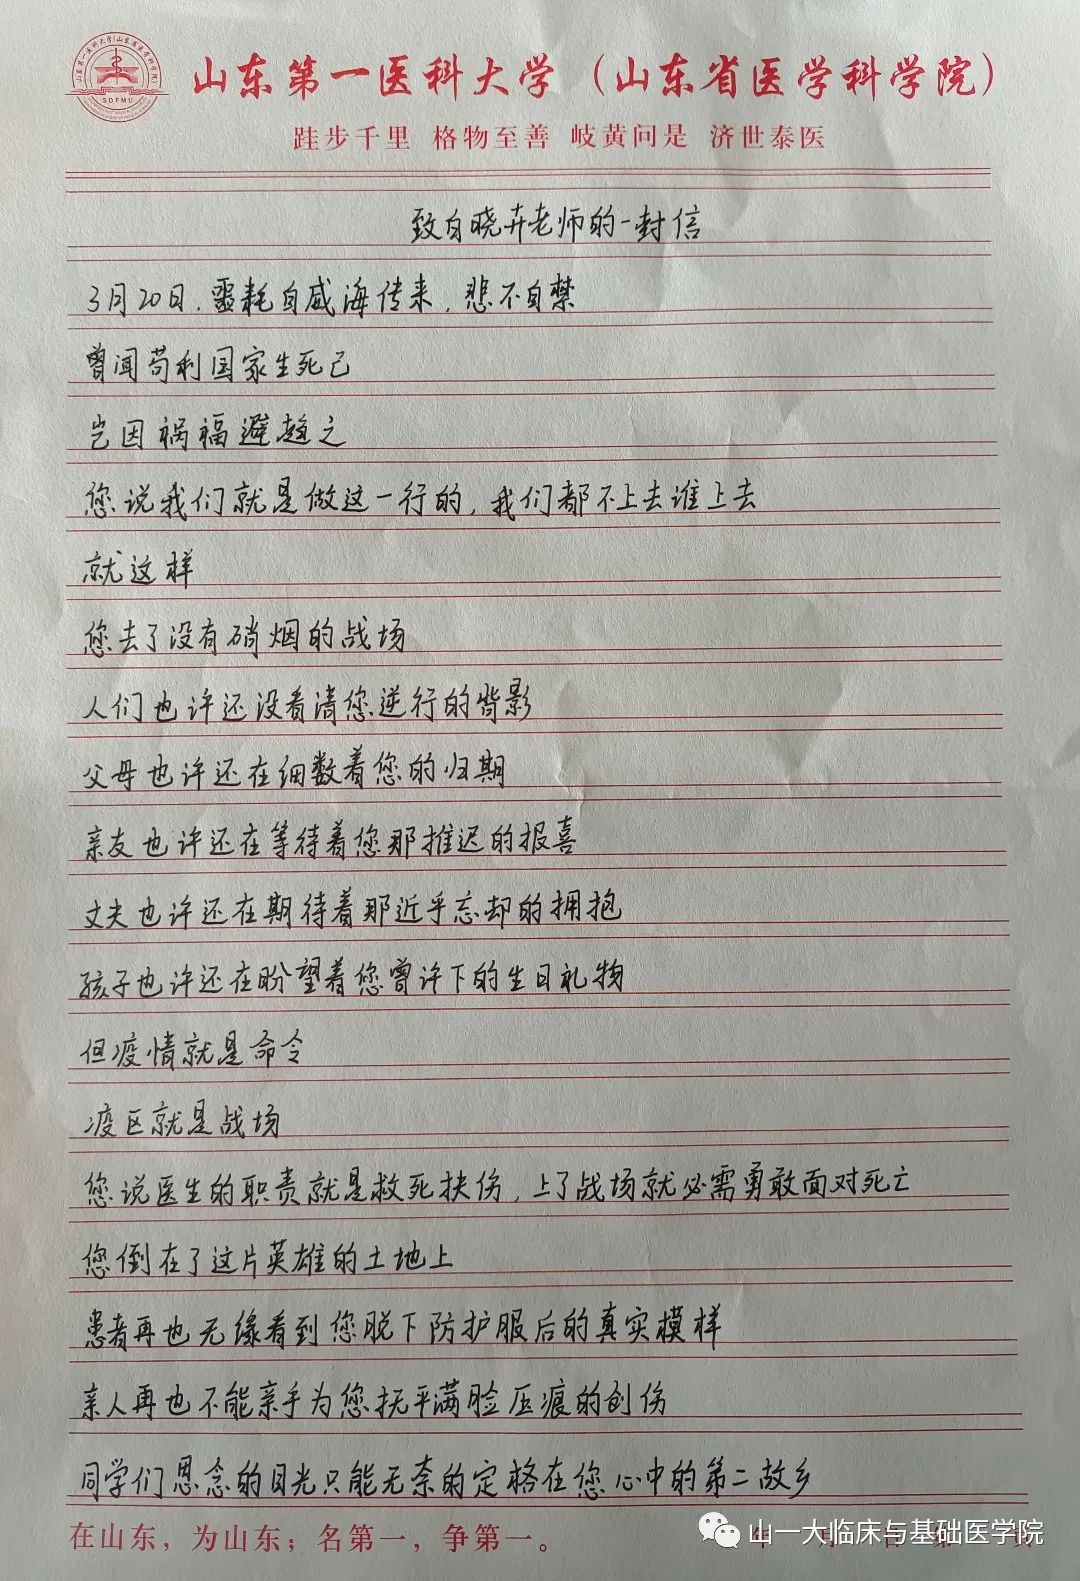 山东第一医科大学（山东省医学科学院）
SDFMU
跬步千里 格物至善 岐黄问是 济世泰医
致白晓卉老师的一封信
3月20日，噩耗自威海传来，悲不自禁
曾闻苟利国家生死已
岂因祸福避趋之
您说我们就是做这一行的，我们都不上去谁上去
就这样
您去了没有硝烟的战场
人们也许还没看清您逆行的背影
父母也许还在细数着您的归期
亲友也许还在等待着您那推迟的报喜
丈夫也许还在期待着那近乎忘却的拥抱
孩子也许还在盼望着您曾许下的生日礼物
但疫情就是命令
疫区就是战场
您说医生的职责就是救死扶伤，上了战场就必需勇敢面对死亡
您倒在了这片英雄的土地上
患者再也无缘看到您脱下防护服后的真实模样
亲人再也不能亲手为您抚平满脸压痕的创伤
同学们思念的目光只能无奈的定格在您心中的第二故乡
在山东，为山东；名第一，争第一。
山一大临床与基础医学院